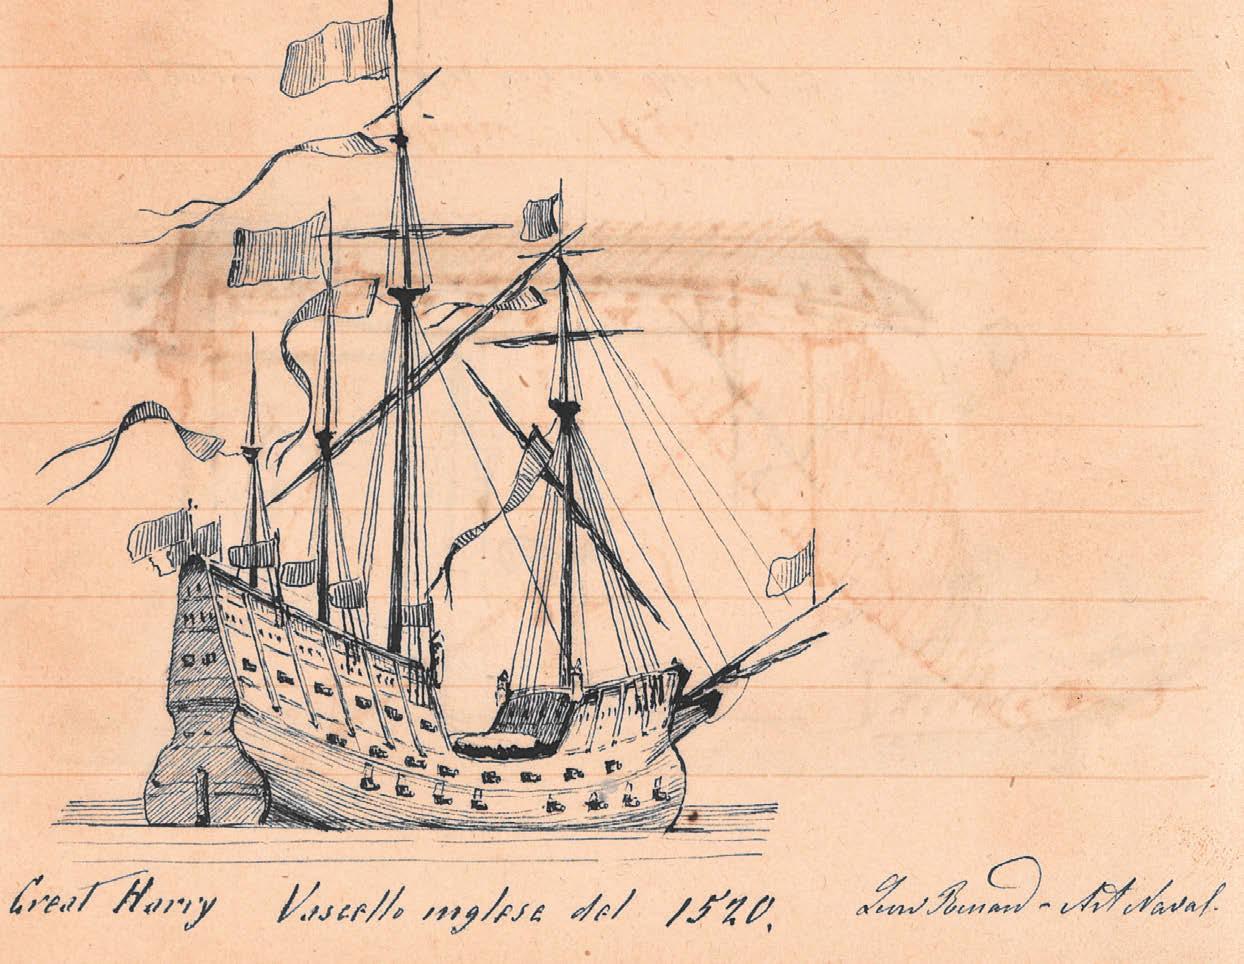 Great Harry Vascello inglese del 1520. Leon Renard - Art Naval.